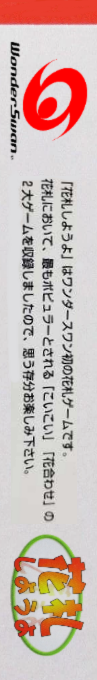 WonderSwan
「花札しようよ」はワンダースワン初の花札ゲームです。
花札において、最もポピュラーとされる「こいこい」「花合わせ」の
2大ゲームを収録しましたので、思う存分お楽しみ下さい。
花札
しようよ